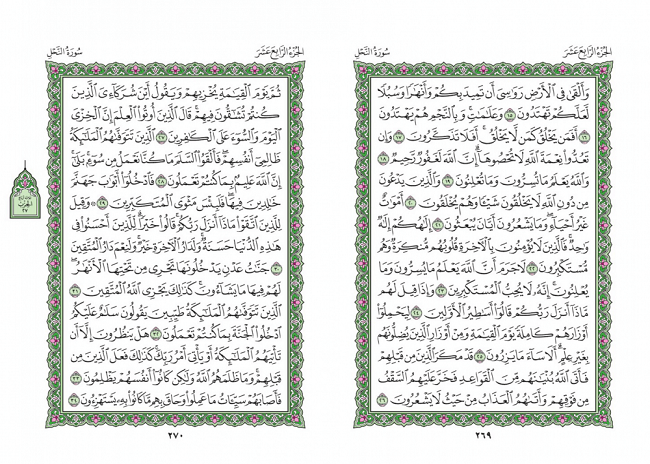 الجزء الرابع عشر
سورة النحل
وَأَلْقَىٰ فِي ٱلْأَرْضِ رَوَٰسِيَ أَن تَمِيدَ بِكُمْ وَأَنْهَٰرًا وَسُبُلًا
لَّعَلَّكُمْ تَهْتَدُونَ ١٥ وَعَلَٰمَٰتٍ وَبِٱلنَّجْمِ هُمْ يَهْتَدُونَ
١٦ أَفَمَن يَخْلُقُ كَمَن لَّا يَخْلُقُ أَفَلَا تَذَكَّرُونَ ١٧ وَإِن
تَعُدُّوا۟ نِعْمَةَ ٱللَّهِ لَا تُحْصُوهَآ إِنَّ ٱللَّهَ لَغَفُورٌ رَّحِيمٌ ١٨
وَٱللَّهُ يَعْلَمُ مَا تُسِرُّونَ وَمَا تُعْلِنُونَ ١٩ وَٱلَّذِينَ يَدْعُونَ
مِن دُونِ ٱللَّهِ لَا يَخْلُقُونَ شَيْـًٔا وَهُمْ يُخْلَقُونَ ٢٠ أَمْوَٰتٌ
غَيْرُ أَحْيَآءٍ وَمَا يَشْعُرُونَ أَيَّانَ يُبْعَثُونَ ٢١ إِلَٰهُكُمْ إِلَٰهٌ
وَٰحِدٌ فَٱلَّذِينَ لَا يُؤْمِنُونَ بِٱلْآخِرَةِ قُلُوبُهُم مُّنكِرَةٌ وَهُم
مُّسْتَكْبِرُونَ ٢٢ لَا جَرَمَ أَنَّ ٱللَّهَ يَعْلَمُ مَا يُسِرُّونَ وَمَا
يُعْلِنُونَ إِنَّهُۥ لَا يُحِبُّ ٱلْمُسْتَكْبِرِينَ ٢٣ وَإِذَا قِيلَ لَهُم
مَّاذَآ أَنزَلَ رَبُّكُمْ قَالُوٓا۟ أَسَٰطِيرُ ٱلْأَوَّلِينَ ٢٤ لِيَحْمِلُوٓا۟
أَوْزَارَهُمْ كَامِلَةً يَوْمَ ٱلْقِيَٰمَةِ وَمِنْ أَوْزَارِ ٱلَّذِينَ يُضِلُّونَهُم
بِغَيْرِ عِلْمٍ أَلَا سَآءَ مَا يَزِرُونَ ٢٥ قَدْ مَكَرَ ٱلَّذِينَ مِن قَبْلِهِمْ
فَأَتَى ٱللَّهُ بُنْيَٰنَهُم مِّنَ ٱلْقَوَاعِدِ فَخَرَّ عَلَيْهِمُ ٱلسَّقْفُ
مِن فَوْقِهِمْ وَأَتَىٰهُمُ ٱلْعَذَابُ مِنْ حَيْثُ لَا يَشْعُرُونَ ٢٦
٢٦٩
الجزء الرابع عشر
سورة النحل
ثُمَّ يَوْمَ ٱلْقِيَٰمَةِ يُخْزِيهِمْ وَيَقُولُ أَيْنَ شُرَكَآءِيَ ٱلَّذِينَ
كُنتُمْ تُشَٰٓقُّونَ فِيهِمْ قَالَ ٱلَّذِينَ أُوتُوا۟ ٱلْعِلْمَ إِنَّ ٱلْخِزْيَ
ٱلْيَوْمَ وَٱلسُّوٓءَ عَلَى ٱلْكَٰفِرِينَ ٢٧ ٱلَّذِينَ تَتَوَفَّىٰهُمُ ٱلْمَلَٰٓئِكَةُ
ظَالِمِيٓ أَنفُسِهِمْ فَأَلْقَوُا۟ ٱلسَّلَمَ مَا كُنَّا نَعْمَلُ مِن سُوٓءٍ بَلَىٰٓ
إِنَّ ٱللَّهَ عَلِيمٌ بِمَا كُنتُمْ تَعْمَلُونَ ٢٨ فَٱدْخُلُوٓا۟ أَبْوَٰبَ جَهَنَّمَ
خَٰلِدِينَ فِيهَا فَلَبِئْسَ مَثْوَى ٱلْمُتَكَبِّرِينَ ٢٩ وَقِيلَ
لِلَّذِينَ ٱتَّقَوْا۟ مَاذَآ أَنزَلَ رَبُّكُمْ قَالُوا۟ خَيْرًا لِّلَّذِينَ أَحْسَنُوا۟ فِي
هَٰذِهِ ٱلدُّنْيَا حَسَنَةٌ وَلَدَارُ ٱلْآخِرَةِ خَيْرٌ وَلَنِعْمَ دَارُ ٱلْمُتَّقِينَ
٣٠ جَنَّٰتُ عَدْنٍ يَدْخُلُونَهَا تَجْرِي مِن تَحْتِهَا ٱلْأَنْهَٰرُ
لَهُمْ فِيهَا مَا يَشَآءُونَ كَذَٰلِكَ يَجْزِي ٱللَّهُ ٱلْمُتَّقِينَ ٣١
ٱلَّذِينَ تَتَوَفَّىٰهُمُ ٱلْمَلَٰٓئِكَةُ طَيِّبِينَ يَقُولُونَ سَلَٰمٌ عَلَيْكُمُ
ٱدْخُلُوا۟ ٱلْجَنَّةَ بِمَا كُنتُمْ تَعْمَلُونَ ٣٢ هَلْ يَنظُرُونَ إِلَّآ أَن
تَأْتِيَهُمُ ٱلْمَلَٰٓئِكَةُ أَوْ يَأْتِيَ أَمْرُ رَبِّكَ كَذَٰلِكَ فَعَلَ ٱلَّذِينَ مِن
قَبْلِهِمْ وَمَا ظَلَمَهُمُ ٱللَّهُ وَلَٰكِن كَانُوٓا۟ أَنفُسَهُمْ يَظْلِمُونَ ٣٣
فَأَصَابَهُمْ سَيِّـَٔاتُ مَا عَمِلُوا۟ وَحَاقَ بِهِم مَّا كَانُوا۟ بِهِۦ يَسْتَهْزِءُونَ ٣٤
٢٧٠